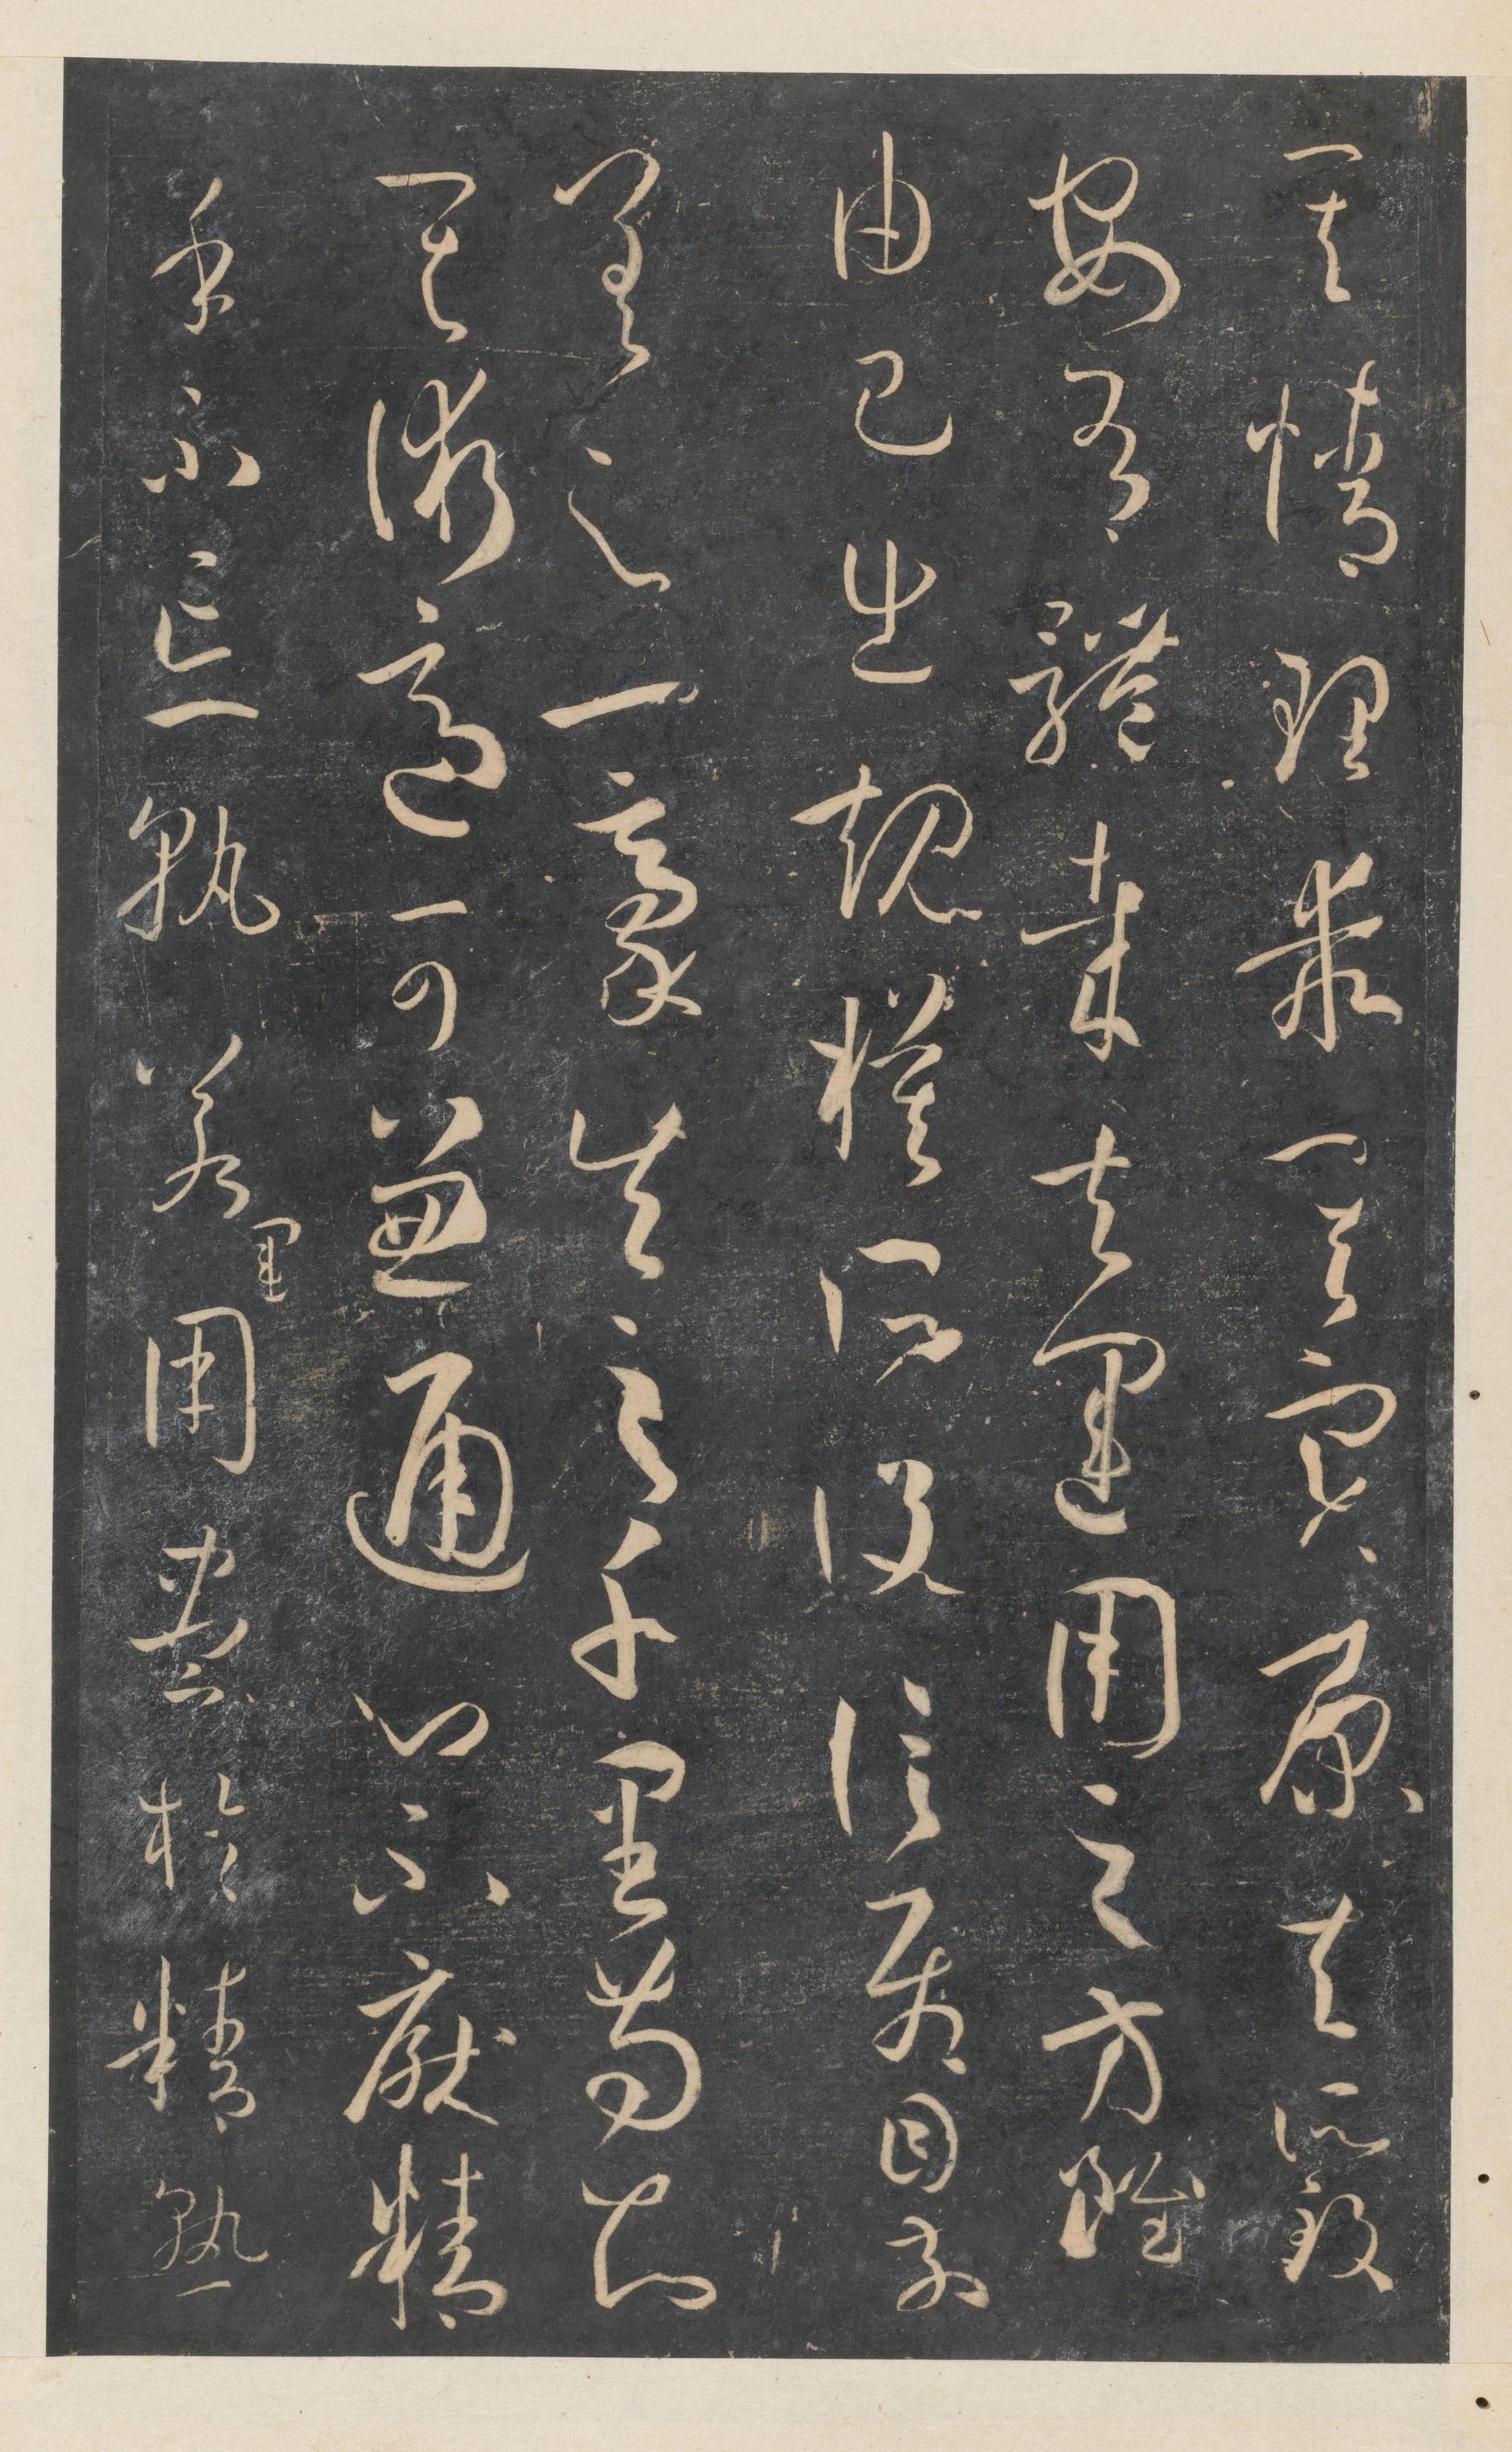 其情理豈其實原夫所致
安有體豈夫運用之方雖
由己出規模所設信屬目前
差之一豪失之千里苟知
其術適可兼通心不厭精
手不忘熟若運用盡於精熟